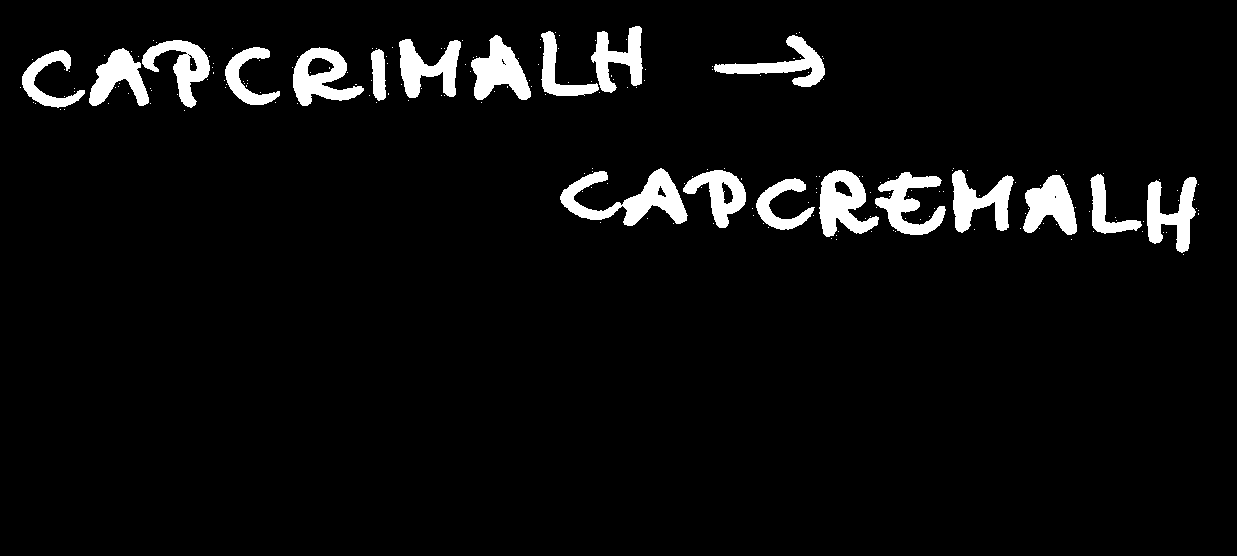 CAPCRIMALH →
CAPCREMALH